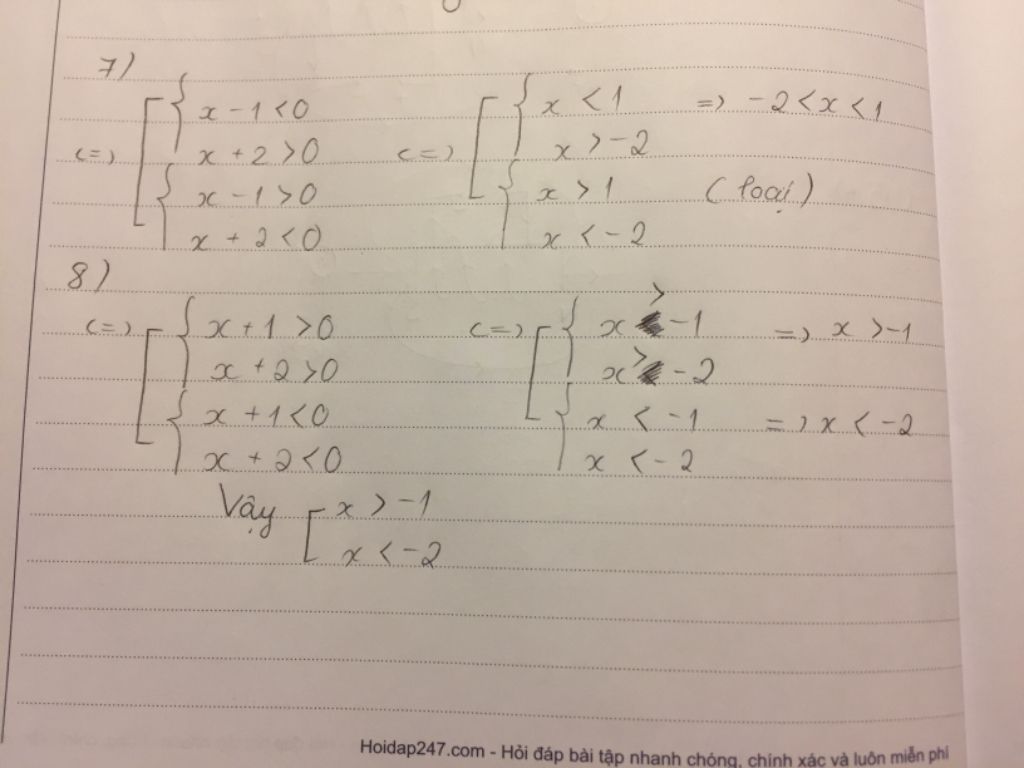 7)
(=) [ { x - 1 < 0 (=) [ { x < 1 => -2 < x < 1
x + 2 > 0 x > -2
{ x - 1 > 0 { x > 1 (loại)
x + 2 < 0 x < -2
8)
(=) [ { x + 1 > 0 (=) [ { x > -1 => x > -1
x + 2 > 0 x > -2
{ x + 1 < 0 { x < -1 => x < -2
x + 2 < 0 x < -2
Vậy [ x > -1
x < -2
Hoidap247.com - Hỏi đáp bài tập nhanh chóng, chính xác và luôn miễn phí